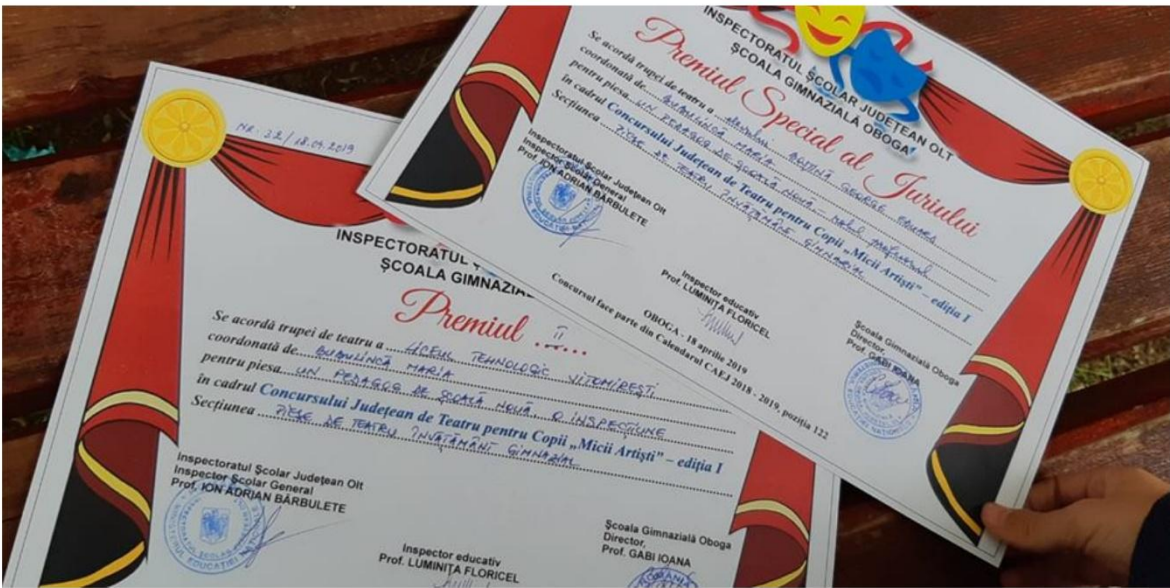 Nr. 22/18.04.2019
INSPECTORATUL
ȘCOALA GIMNAZIAL
Premiul II
Se acordă trupei de teatru a LICEUL TEHNOLOGIC VITOMIREȘTI
coordonată de BUBULINCĂ MARIA
pentru piesa UN PEDAGOG DE ȘCOALĂ NOUĂ. O INSPECȚIUNE
în cadrul Concursului Județean de Teatru pentru Copii „Micii Artiști” – ediția I
Secțiunea PIESE DE TEATRU ÎNVĂȚĂMÂNT GIMNAZIAL
Inspectoratul Școlar Județean Olt
Inspector Școlar General
Prof. ION ADRIAN BĂRBULETE
Inspector educativ
Prof. LUMINIȚA FLORICEL
Școala Gimnazială Oboga
Director,
Prof. GABI IOANA
INSPECTORATUL ȘCOLAR JUDEȚEAN OLT
ȘCOALA GIMNAZIALĂ OBOGA"
Premiul Special al Juriului
Se acordă trupei de teatru a elevului GEORGE EDUARD
coordonată de BUBULINCĂ MARIA
pentru piesa UN PEDAGOG DE ȘCOALĂ NOUĂ – rolul profesorul
în cadrul Concursului Județean de Teatru pentru Copii „Micii Artiști” – ediția I
Secțiunea PIESE DE TEATRU ÎNVĂȚĂMÂNT GIMNAZIAL
Inspectoratul Școlar Județean Olt
Inspector Școlar General
Prof. ION ADRIAN BĂRBULETE
Inspector educativ
Prof. LUMINIȚA FLORICEL
Școala Gimnazială Oboga
Director,
Prof. GABI IOANA
OBOGA - 18 aprilie 2019
Concursul face parte din Calendarul CAEJ 2018 - 2019, poziția 122